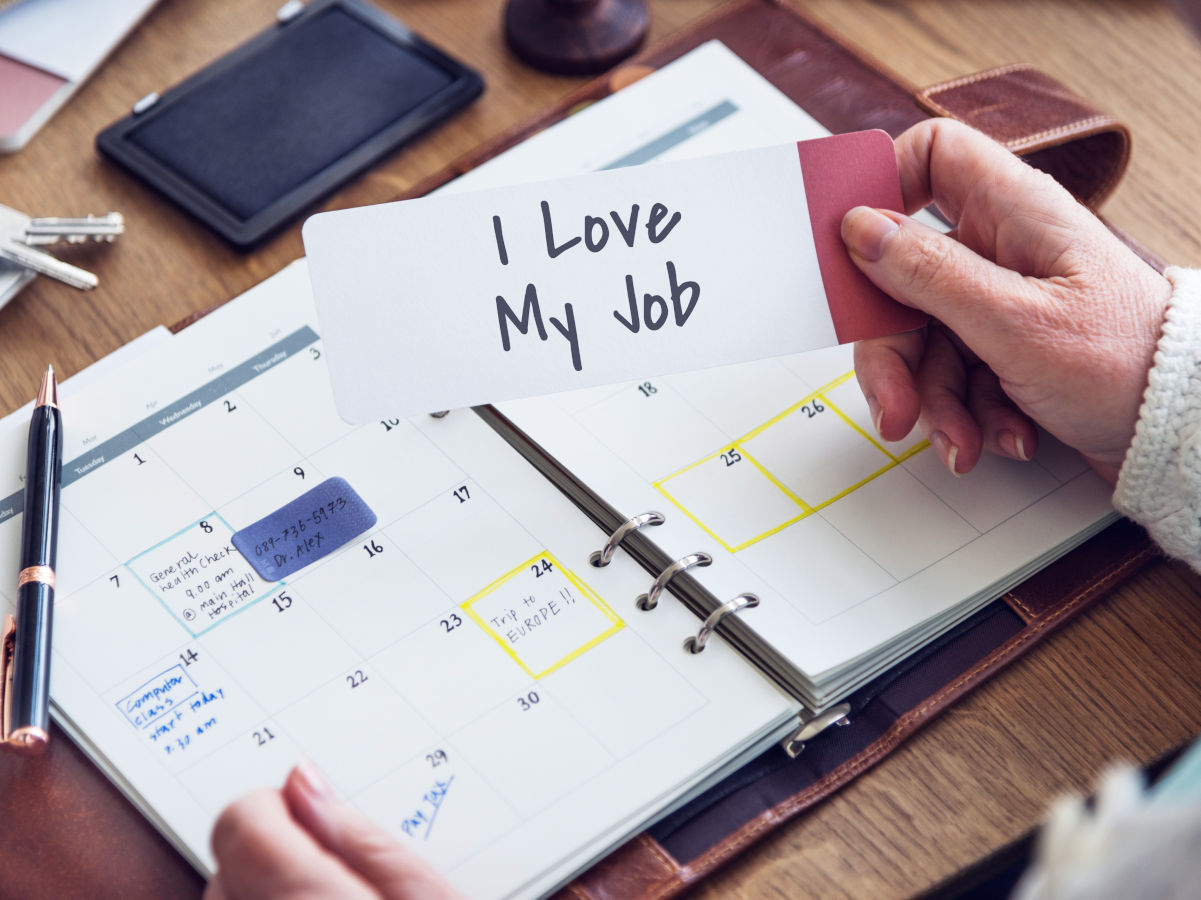 I Love
My Job
Mar
Apr
May
Tuesday
Wednesday
Thursday
1
2
3
7
8
9
10
General
Health Check
9.00 am
@ Main Hall
Hospital
089-736-5973
Dr. Alex
14
15
16
17
Computer
class
start today
9.30 am
21
22
23
24
Trip to
EUROPE!!
29
30
Pay Tax
18
25
26